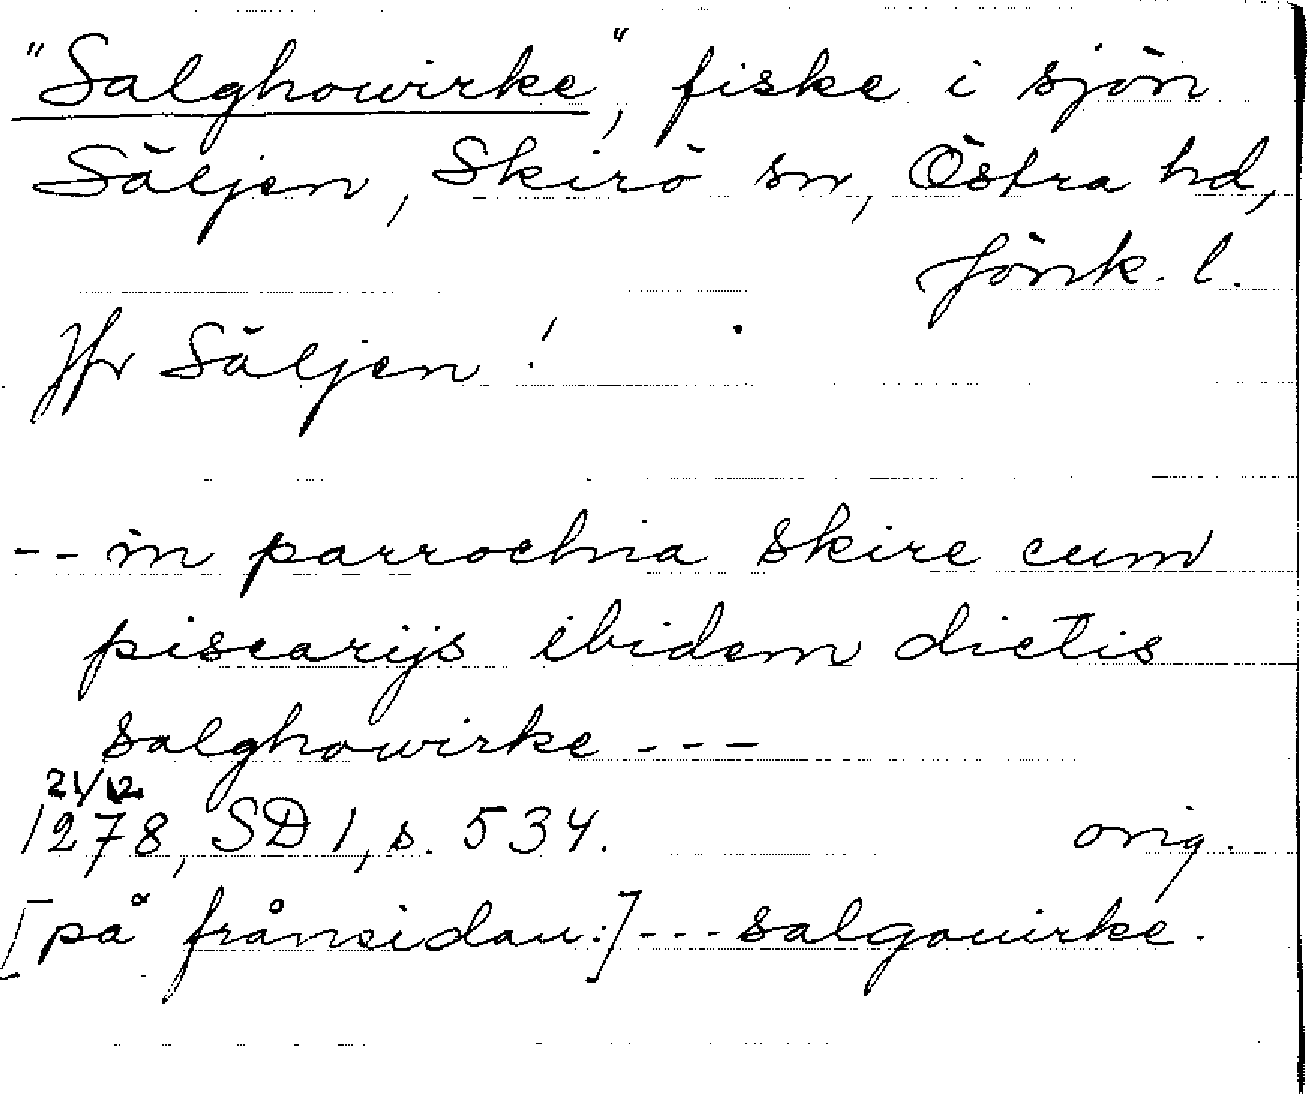 "Salghowirke", fiske i sjön
Säljen, Skirö sn, Östra hd,
Jönk. l.
Jfr Säljen!
-- in parrochia skire cum
piscarijs ibidem dictis
salghowirke ---
21/12
1278, SD 1, s. 534. orig.
[på frånsidan:] --- salgouirke.